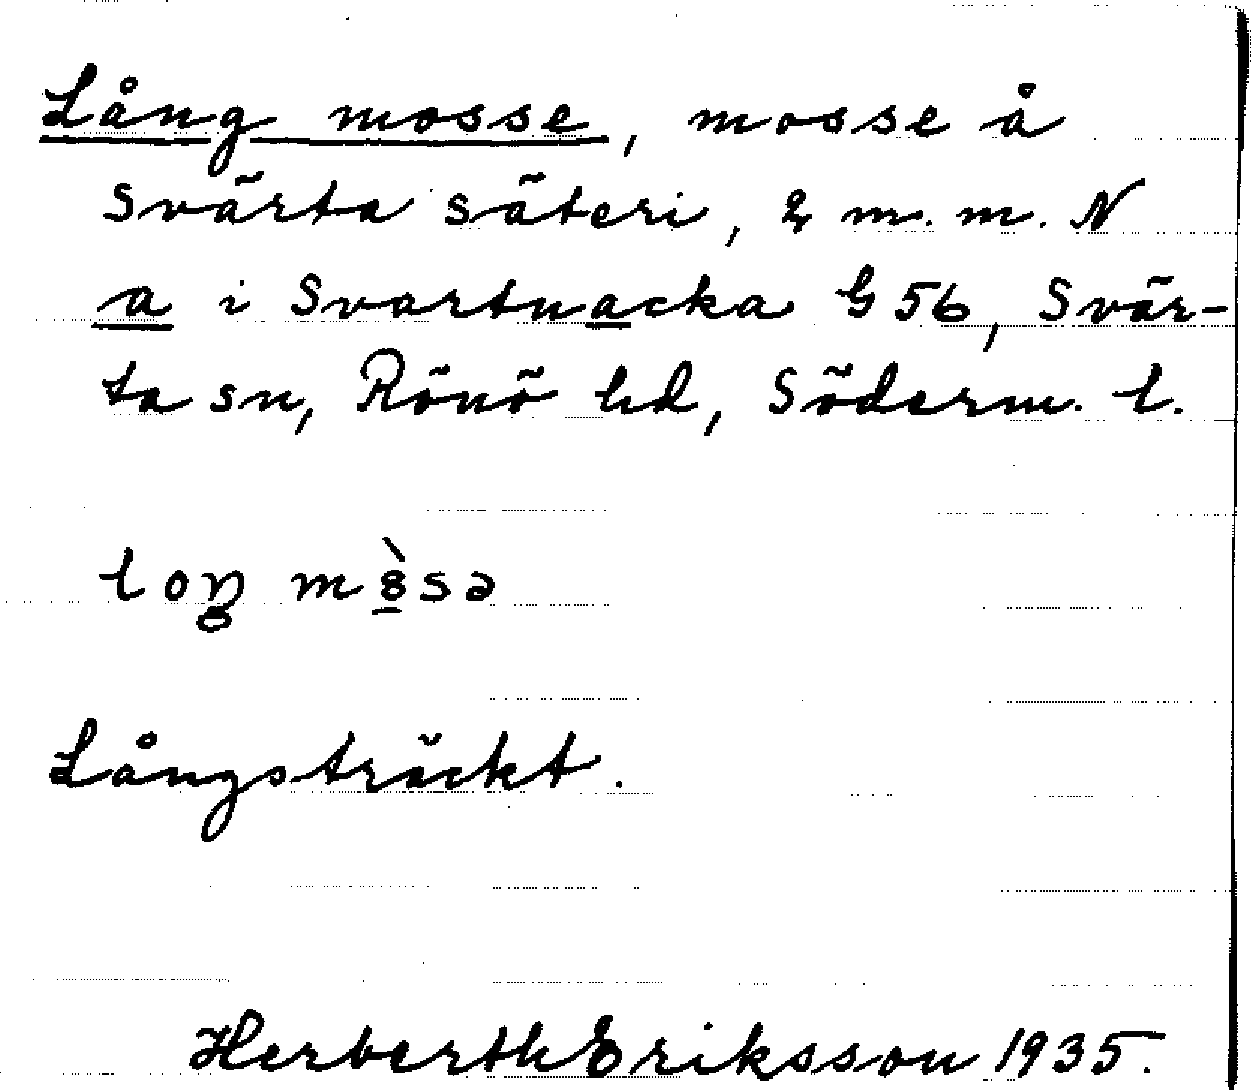 Lång mosse, mosse å
Svärta säteri, 2 m. m. N
a i Svartnacka G 56, Svär-
ta sn, Rönö hd, Söderm. l.
loŋ
Långsträckt.
Herberth Eriksson 1935.